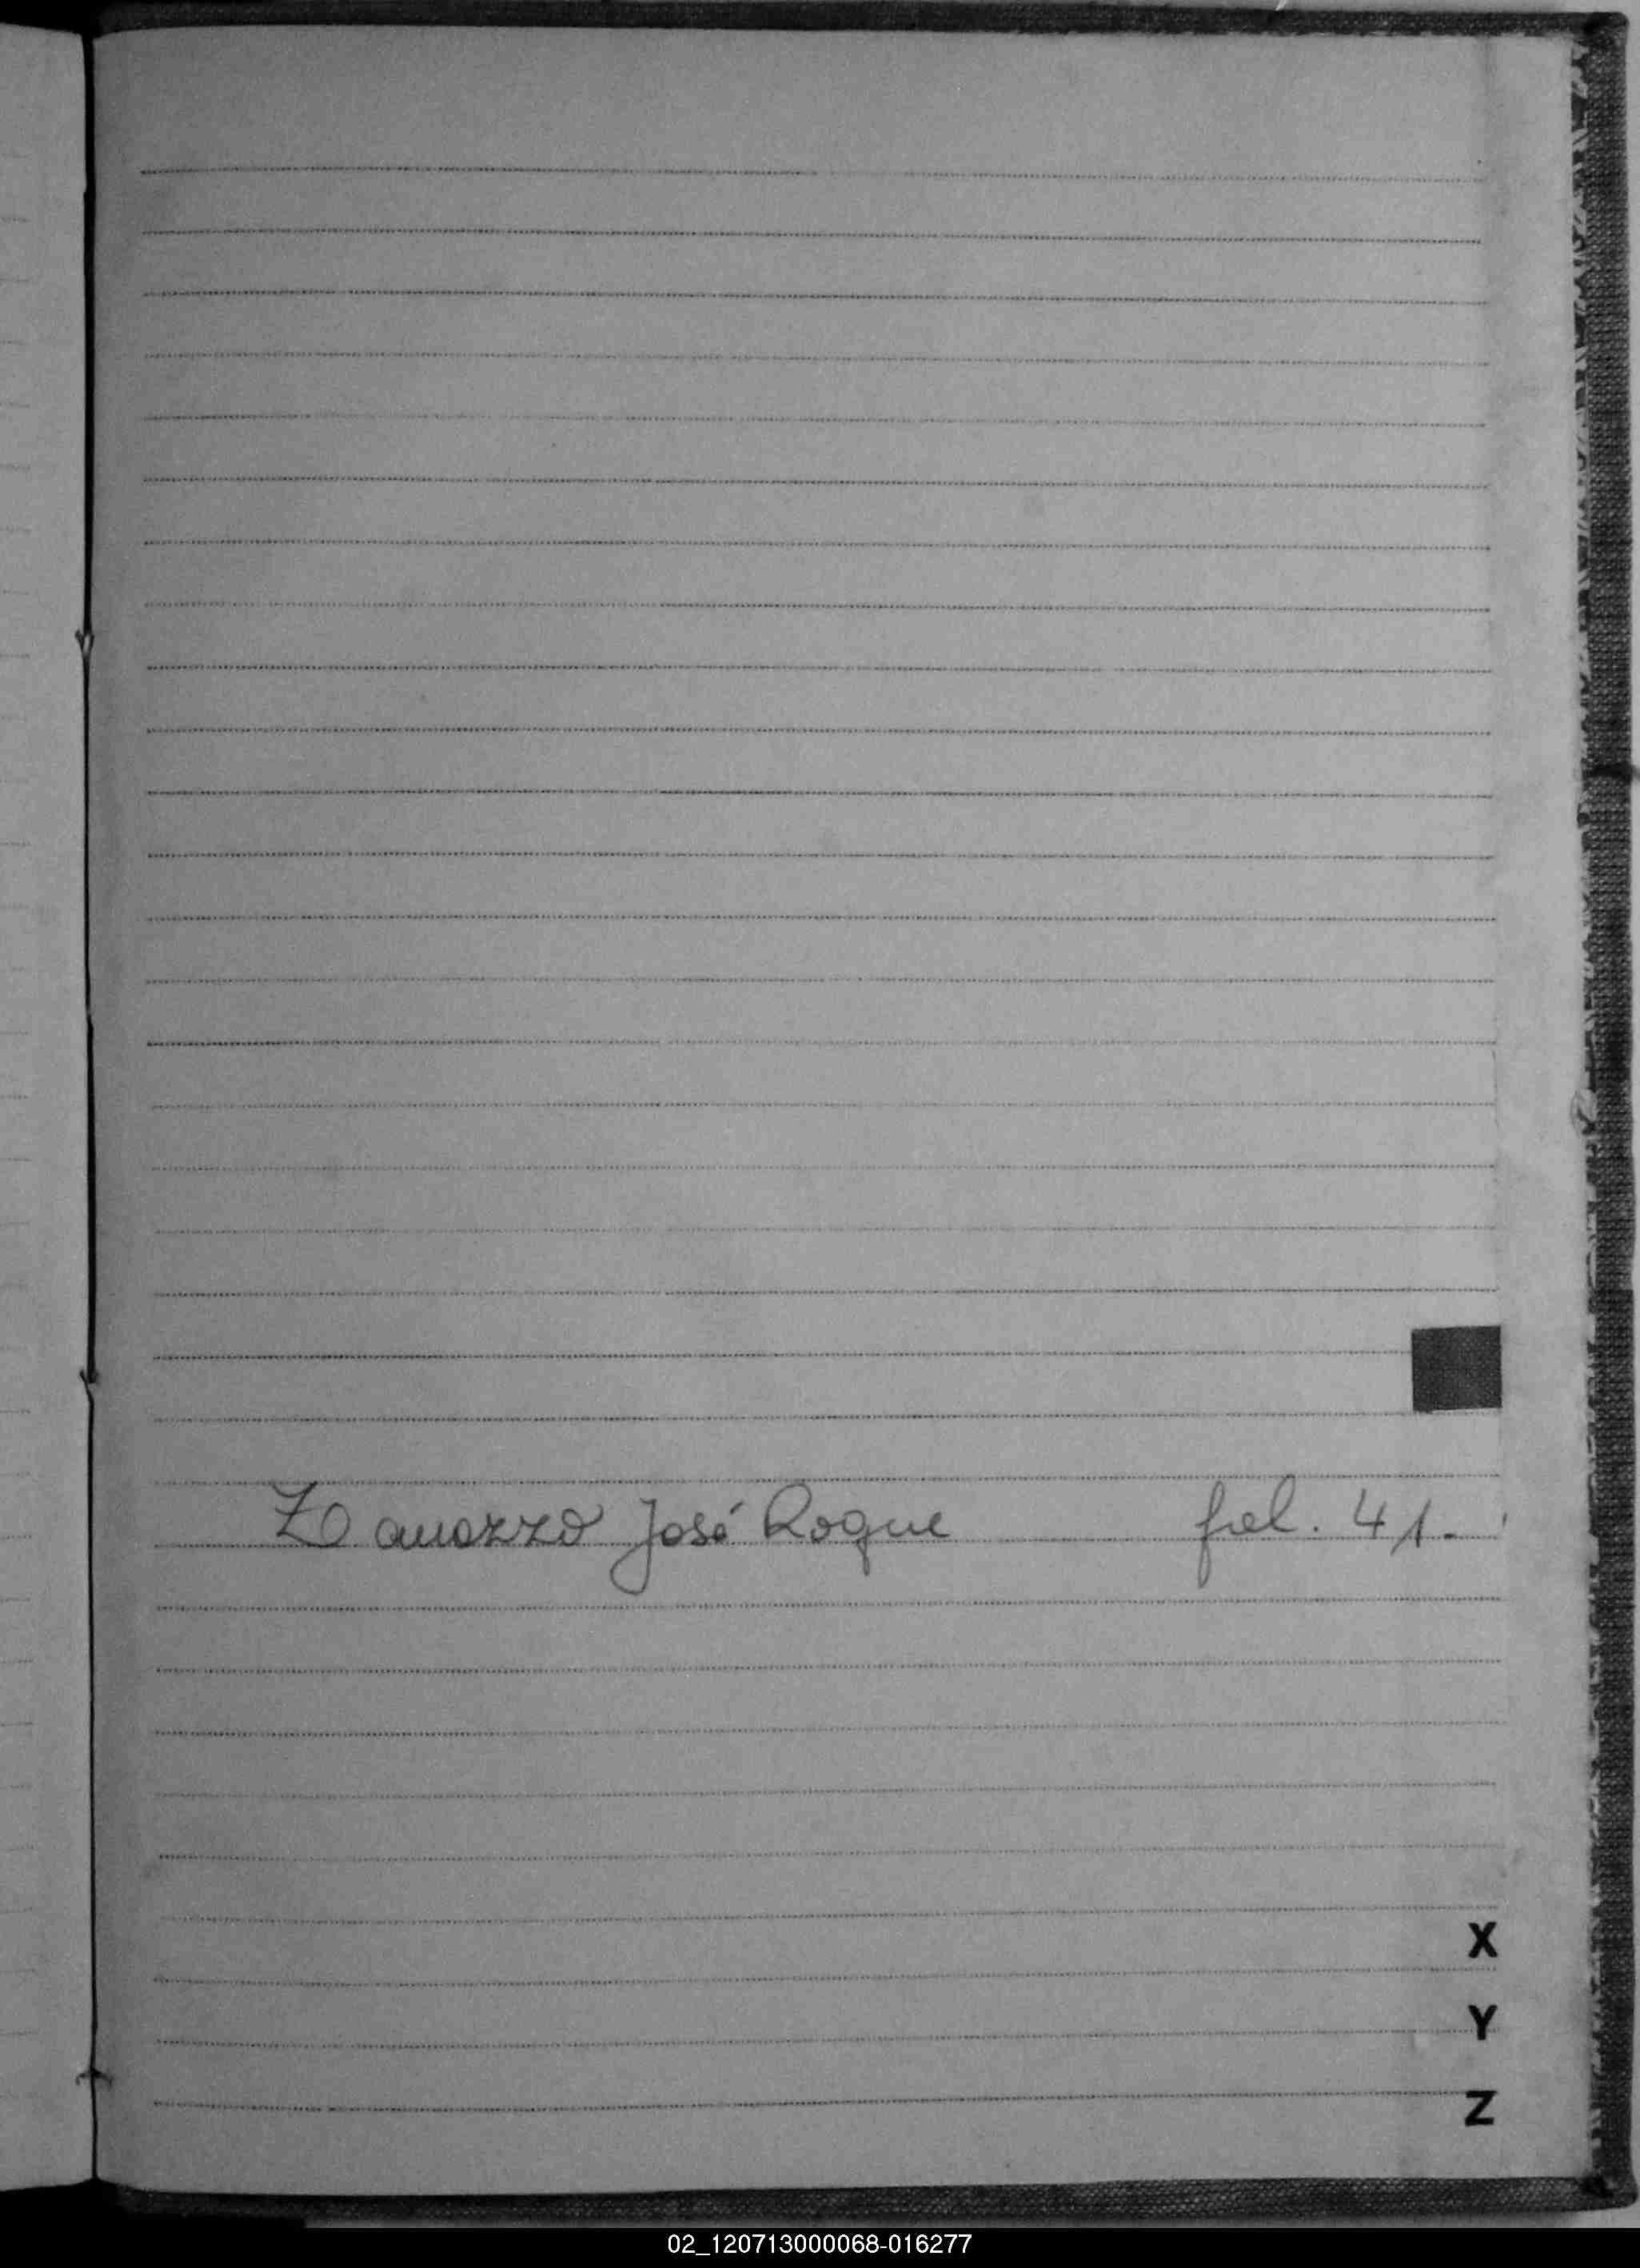 Zanazzo José Roque fol. 41.
X
Y
Z
02_120713000068-016277